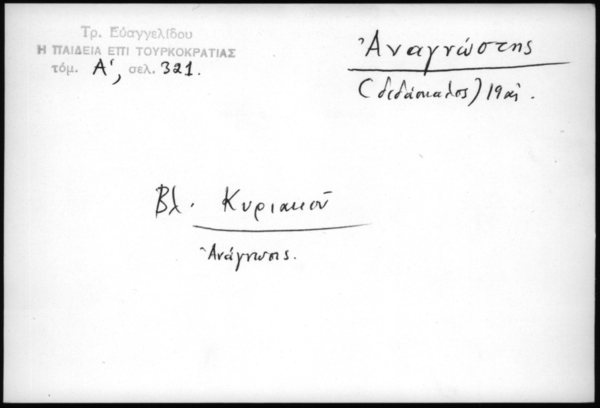 Τρ. Εὐαγγελίδου
Η ΠΑΙΔΕΙΑ ΕΠΙ ΤΟΥΡΚΟΚΡΑΤΙΑΣ
τόμ. Α', σελ. 321.
Ἀναγνώστης
(διδάσκαλος)
Βλ. Κυριακοῦ
Ἀνάγνωσις.